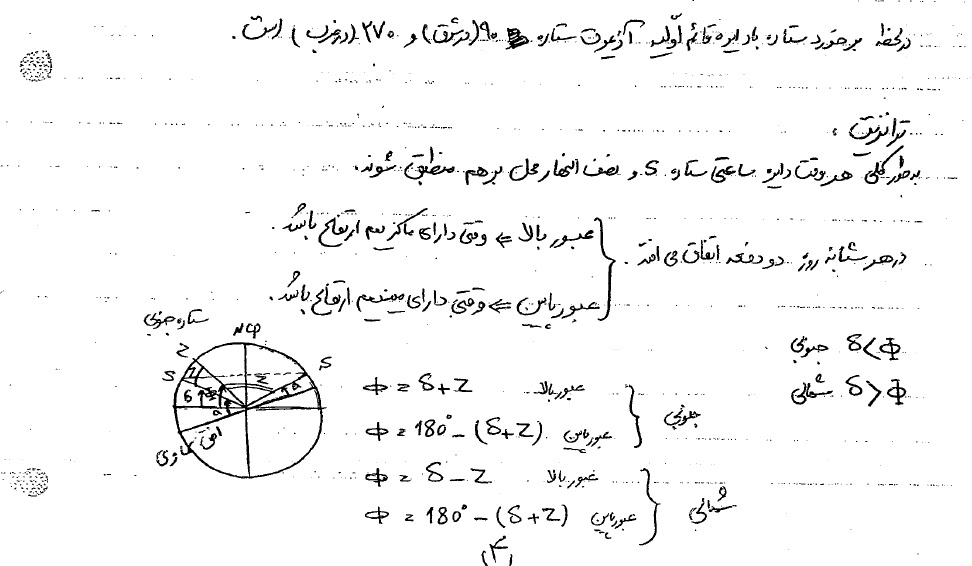 در لحظه برخورد ستاره با دایره قائم اولیه آزیموت ستاره ۹۰ (در شرق) و ۲۷۰ (در غرب) است.
ترانزیت:
بطور کلی هر وقت دایره ساعتی ستاره S و نصف النهار محل بر هم منطبق شوند.
در هر شبانه روز دو دفعه اتفاق می افتد.
عبور بالا ⇐ وقتی دارای ماکزیمم ارتفاع باشد.
عبور پایین ⇐ وقتی دارای مینیمم ارتفاع باشد.
δ < Φ جنوبی
δ > Φ شمالی
جنوبی
عبور بالا Φ = δ + Z
عبور پایین Φ = 180° - (δ+Z)
شمالی
عبور بالا Φ = δ - Z
عبور پایین Φ = 180° - (δ+Z)
ستاره جنوبی
NCP
Z
S
Z
S
a
δ
Φ
a
افق سماوی
(۴)